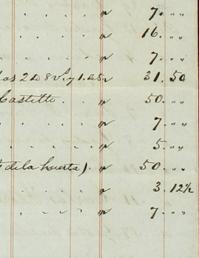 . . . . " 7. ,,
. . . . " 16. ,,
. . . . " 7. ,,
as 2 D 8 v. y 1. 25 " 31. 50
Castillo. . " 50. ,,
. . . . " 7. ,,
. . . . " 5. ,,
de la huerta). " 50. ,,
. . . . " 3. 12½
. . . . " 7. ,,